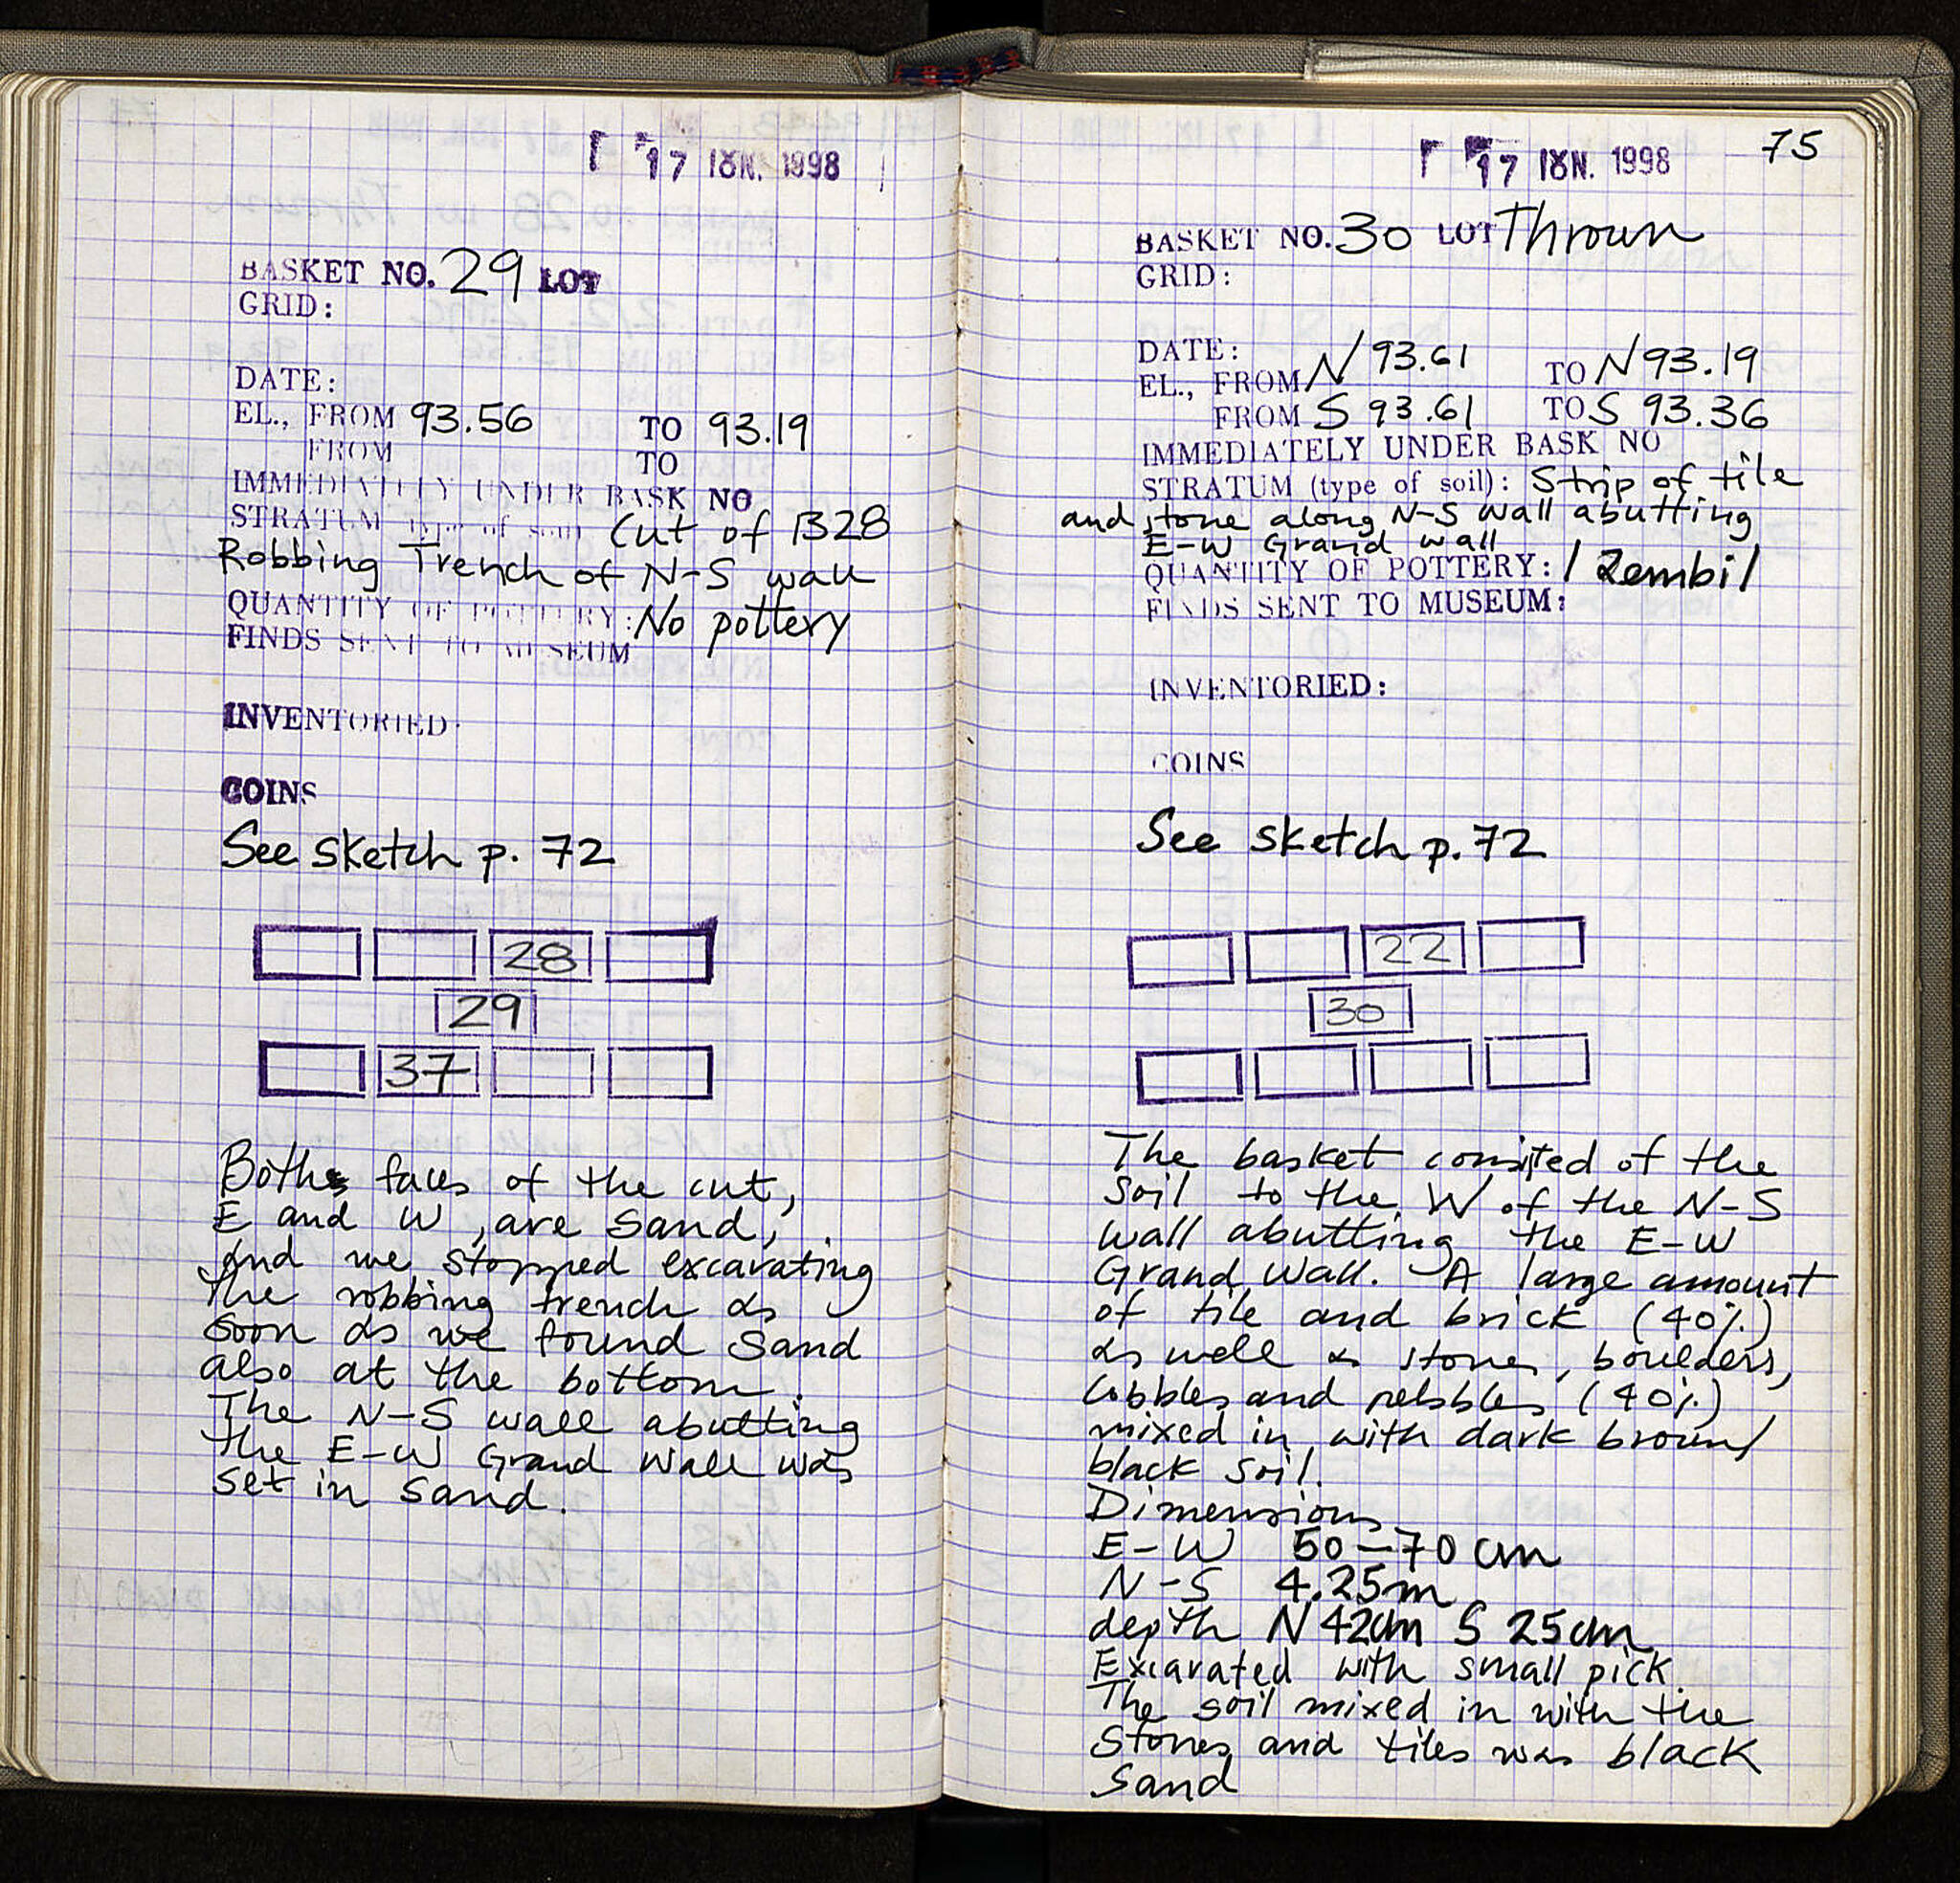 17 ΙΟΥΝ. 1998
BASKET NO. 29 LOT
GRID:
DATE:
EL., FROM 93.56 TO 93.19
FROM TO
IMMEDIATELY UNDER BASK NO
STRATUM (type of soil) Cut of B28
Robbing Trench of N-S wall
QUANTITY OF POTTERY: No pottery
FINDS SENT TO MUSEUM
INVENTORIED:
COINS
See sketch p. 72
28
29
37
Both faces of the cut,
E and W, are sand,
and we stopped excavating
the robbing trench as
soon as we found sand
also at the bottom.
The N-S wall abutting
the E-W Grand Wall was
set in sand.
17 ΙΟΥΝ. 1998 75
BASKET NO. 30 LOT Thrown
GRID:
DATE:
EL., FROM N 93.61 TO N 93.19
FROM S 93.61 TO S 93.36
IMMEDIATELY UNDER BASK NO
STRATUM (type of soil): Strip of tile
and stone along N-S wall abutting
E-W Grand wall
QUANTITY OF POTTERY: 1 Zembil
FINDS SENT TO MUSEUM:
INVENTORIED:
COINS
See sketch p. 72
22
30
The basket consited of the
soil to the W of the N-S
wall abutting the E-W
Grand Wall. A large amount
of tile and brick (40%)
as well as stones, boulders,
cobbles and pebbles (40%)
mixed in with dark brown/
black soil.
Dimensions
E-W 50-70 cm
N-S 4.25m
depth N 42cm S 25cm
Excavated with small pick.
The soil mixed in with the
stones and tiles was black
sand